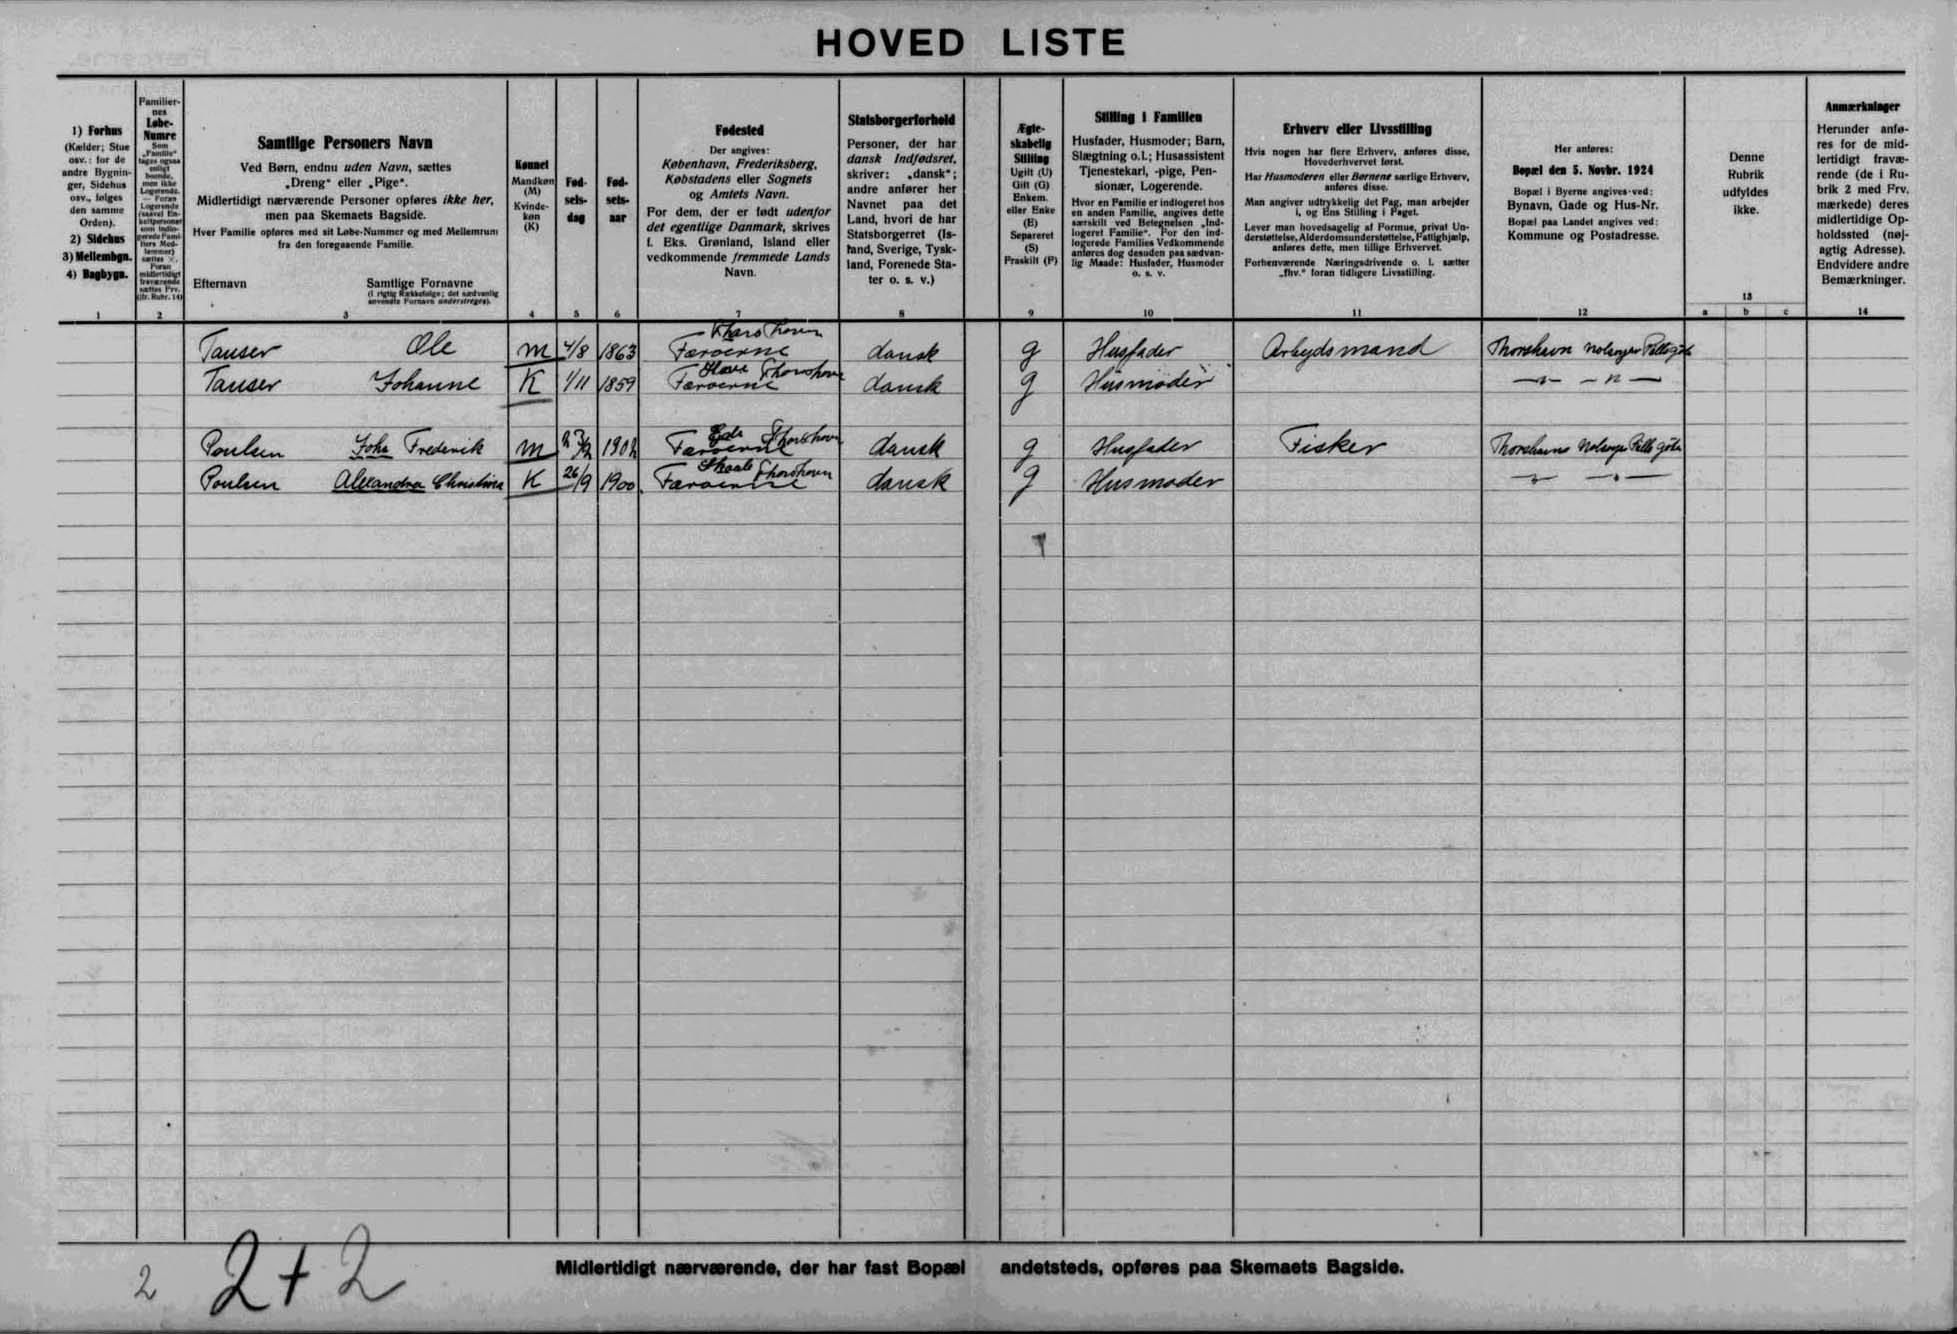 HOVED LISTE
1) Forhus
(Kælder; Stue
osv.: for de
andre Bygnin-
ger, Sidehus
osv., følges
den samme
Orden).
2) Sidehus
3) Mellembgn.
4) Bagbygn.
1
Familier-
nes
Løbe-
Numre
Som
„Familie"
tages ogsaa
enligt
boende,
men ikke
Logerende.
— Foran
Logerende
(saavel En-
keltpersoner
som indlo-
gerede Fami-
liers Med-
lemmer)
sættes ×.
Foran
midlertidigt
fraværende
sættes Frv.
(jfr. Rubr. 14)
2
Samtlige Personers Navn
Ved Børn, endnu uden Navn, sættes
„Dreng" eller „Pige".
Midlertidigt nærværende Personer opføres ikke her,
men paa Skemaets Bagside.
Hver Familie opføres med sit Løbe-Nummer og med Mellemrum
fra den foregaaende Familie.
Efternavn Samtlige Fornavne
(i rigtig Rækkefølge; det sædvanlig
anvendte Fornavn understreges).
3
Kønnet
Mandkøn
(M)
Kvinde-
køn
(K)
4
Fød-
sels-
dag
5
Fød-
sels-
aar
6
Fødested
Der angives:
København, Frederiksberg,
Købstadens eller Sognets
og Amtets Navn.
For dem, der er født udenfor
det egentlige Danmark, skrives
f. Eks. Grønland, Island eller
vedkommende fremmede Lands
Navn.
7
Statsborgerforhold
Personer, der har
dansk Indfødsret,
skriver: „dansk";
andre anfører her
Navnet paa det
Land, hvori de har
Statsborgerret (Is-
land, Sverige, Tysk-
land, Forenede Sta-
ter o. s. v.)
8
Ægte-
skabelig
Stilling
Ugift (U)
Gift (G)
Enkem.
eller Enke
(E)
Separeret
(S)
Fraskilt (F)
9
Stilling i Familien
Husfader, Husmoder; Barn,
Slægtning o.l.; Husassistent
Tjenestekarl, -pige, Pen-
sionær, Logerende.
Hvor en Familie er indlogeret hos
en anden Familie, angives dette
særskilt ved Betegnelsen „Ind-
logeret Familie". For den ind-
logerede Families Vedkommende
anføres dog desuden paa sædvan-
lig Maade: Husfader, Husmoder
o. s. v.
10
Erhverv eller Livsstilling
Hvis nogen har flere Erhverv, anføres disse,
Hovederhvervet først.
Har Husmoderen eller Børnene særlige Erhverv,
anføres disse.
Man angiver udtrykkelig det Fag, man arbejder
i, og Ens Stilling i Faget.
Lever man hovedsagelig af Formue, privat Un-
derstøttelse, Alderdomsunderstøttelse, Fattighjælp,
anføres dette, men tillige Erhvervet.
Forhenværende Næringsdrivende o. l. sætter
„fhv." foran tidligere Livsstilling.
11
Her anføres:
Bopæl den 5. Novbr. 1924
Bopæl i Byerne angives ved:
Bynavn, Gade og Hus-Nr.
Bopæl paa Landet angives ved:
Kommune og Postadresse.
12
Denne
Rubrik
udfyldes
ikke.
13
a b c
Anmærkninger
Herunder anfø-
res for de mid-
lertidigt fravæ-
rende (de i Ru-
brik 2 med Frv.
mærkede) deres
midlertidige Op-
holdssted (nøj-
agtig Adresse).
Endvidere andre
Bemærkninger.
14
Thorshavn
Tauser Ole M 4/8 1863 Færøerne dansk g Husfader Arbejdsmand Thorshavn
Thorshavn
Tauser Johanne K 1/11 1859 Færøerne dansk g Husmoder — " — " —
Thorshavn
Poulsen Joha Frederik M 1902 Færøerne dansk g Husfader Fisker Thorshavn
Thorshavn
Poulsen Alexandra Christina K 26/9 1900 Færøerne dansk g Husmoder — " — " —
Midlertidigt nærværende, der har fast Bopæl andetsteds, opføres paa Skemaets Bagside.
2 2 + 2